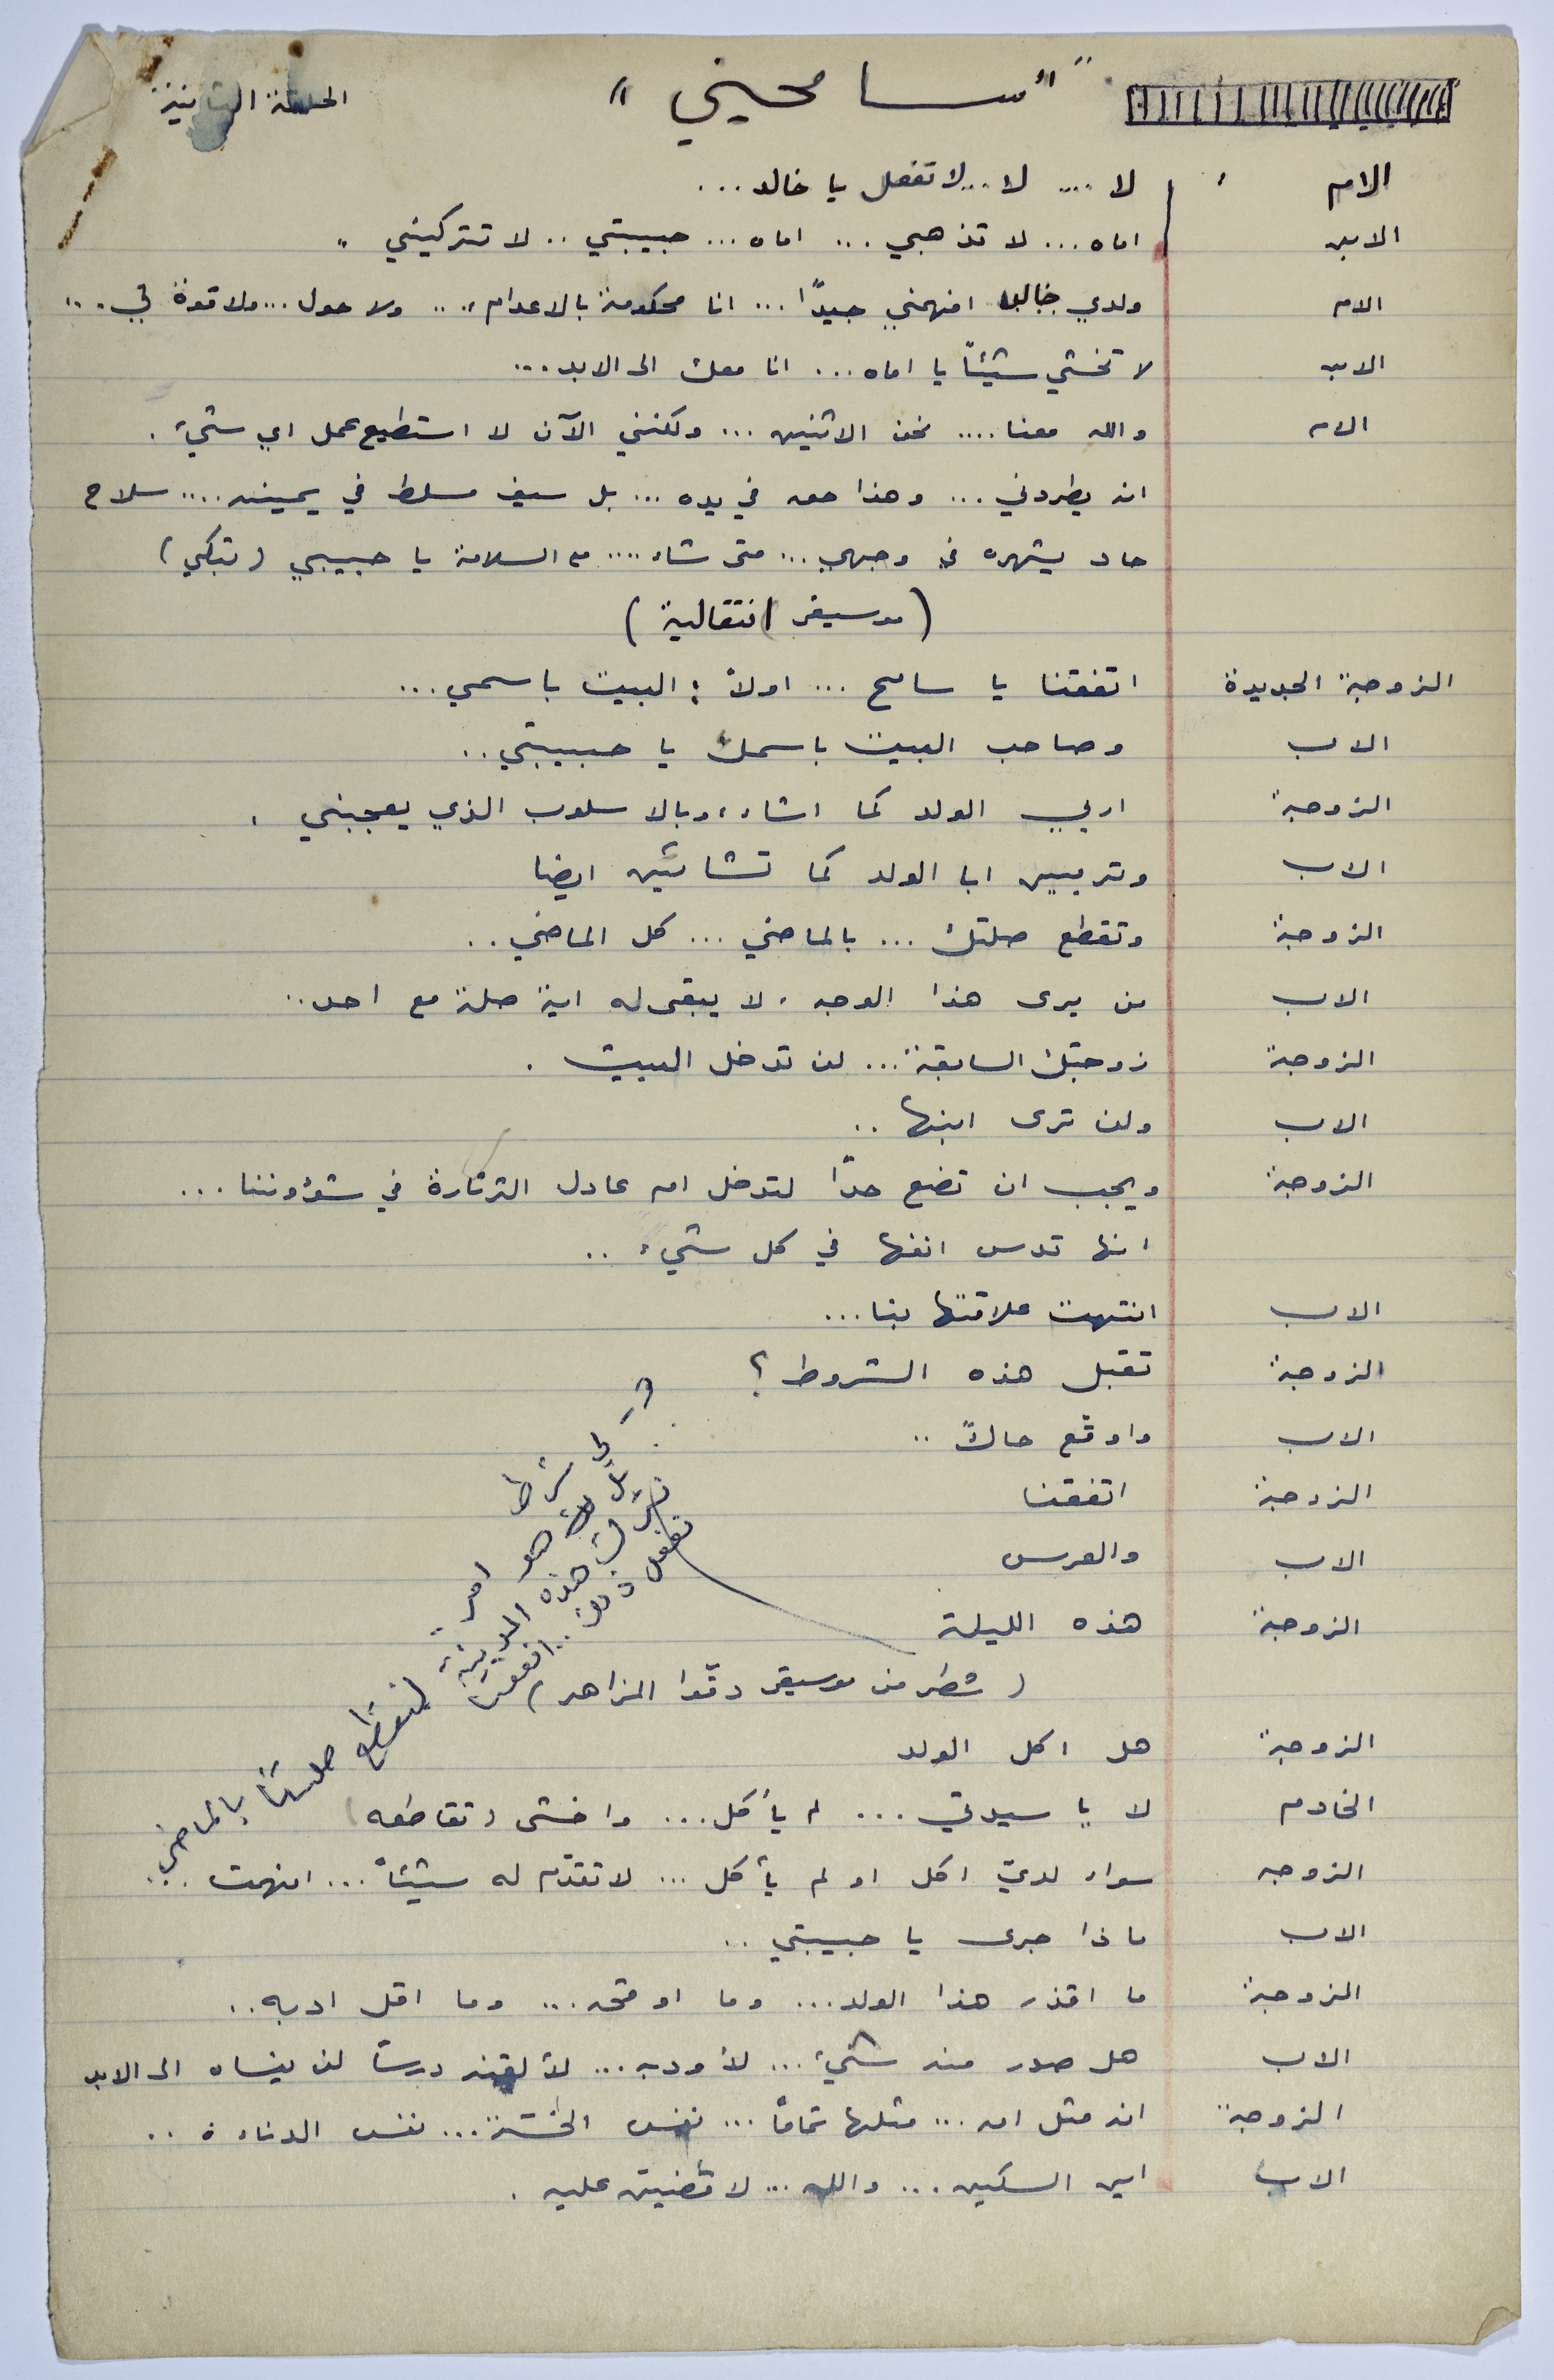 "سامحيني"
الحلقة الثانية
الام لا .... لا... لا تفعل يا خالد ...
الابن اماه ... لا تذهبي ... اماه ... حبيبتي .. لا تتركيني .
الام ولدي افهمني جيدًا ... انا محكومة بالاعدام .... ولا حول ... ولا قوة لي ...
الابن لا تخشي شيئاً يا اماه ... انا معك الى الابد ...
الام والله معنا .... نحن الاثنين ... ولكنني الآن لا استطيع عمل اي شيء .
انه يطردني ... وهذا حقه في يده ... بل سيف مسلط في يمينه .... سلاح
حاد يشهره في وجهي ... متى شاء .... مع السلامة يا حبيبي (تبكي)
(موسيقى انتقالية)
الزوجة الجديدة اتفقتنا يا سامح ... اولاً : البيت باسمي ...
الاب وصاحب البيت باسمك يا حبيبتي ..
الزوجة اربي الولد كما اشاء ، وبالاسلوب الذي يعجبني .
الاب وتربين ابا الولد كما تشائين ايضا
الزوجة وتقطع صلتك ... بالماضي ... كل الماضي ..
الاب من يرى هذا الوجه ، لا يبقى له اية صلة مع احد ..
الزوجة زوجتك السابقة ... لن تدخل البيت .
الاب ولن ترى ابنها ..
الزوجة ويجب ان تضع حدّا لتدخل ام عادل الثرثارة في شؤوننا ...
انها تدس انفها في كل شيء ..
الاب انتهت علاقتها بنا ...
الزوجة تقبل هذه الشروط ؟
الاب واوقّع حالاً ..
الزوجة اتفقنا
الاب والعرس
الزوجة هذه الليلة
شرط
هو امر
هذه المدينة لنقطع صلتنا بالماضي ..
نفعل ذلك .. اتفقنا
(شطر من موسيقى دقّوا المزاهر)
الزوجة هل اكل الولد
الخادم لا يا سيدتي ... لم يأكل ... واخشى (تقاطعه)
الزوجه سواء لديّ اكل او لم يأكل ... لا تقدّم له شيئاً ... افهمت ..
الاب ماذا جرى يا حبيبتي ..
الزوجة ما اقذر هذا الولد ... وما اوقحه ... وما اقل ادبه ..
الاب هل صدر منه شيء ... لأودبه ... لألقنه درساً لن ينساه الى الابد
الزوجة انه مثل امه ... مثلها تماماً ... نفس الخسّة ... نفس الدناءة ..
الاب اين السكين ... والله ... لاقضينّ عليه .